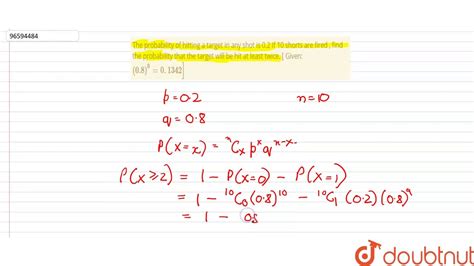 96594484
The probability of hitting a target in any shot is 0.2 If 10 shorts are fired , find
the probability that the target will be hit at least twice. [ Given:
(0.8)⁹ = 0.1342]
p = 0.2 n = 10
q = 0.8
P(X = x) = ⁿCₓ pˣ qⁿ⁻ˣ
P(X ≥ 2) = 1 - P(X=0) - P(X=1)
= 1 - ¹⁰C₀ (0.8)¹⁰ - ¹⁰C₁ (0.2)(0.8)⁹
= 1 - (0.8
doubtnut